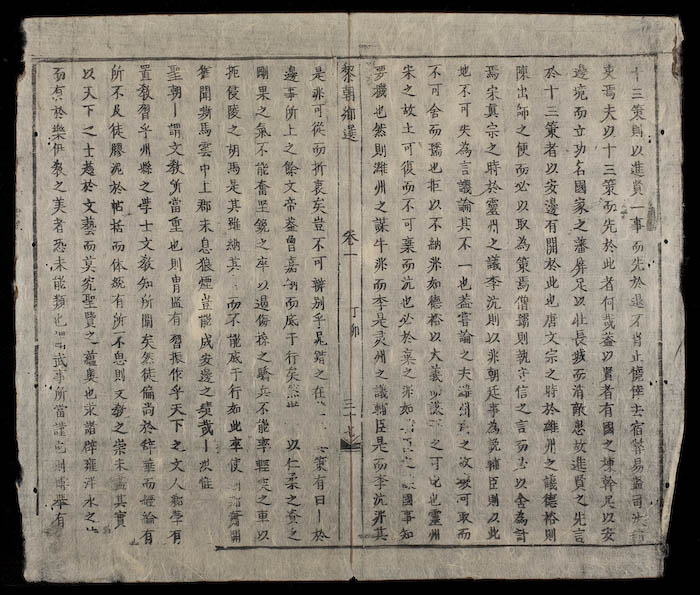 十三策則以進賢一事而先於退不肖止僥倖去宿弊易監司
吏焉夫以十三策而先於此者何哉蓋以賢者有國之楝幹足以安
邊境而立功名國家之藩屏足以壯長城而消敵患故進賢之先言
於十三策者以安邊有關於此也唐文宗之時於維州之議德裕則
陳出師之便而必以取為策焉僧孺則執守信之言而必以舍為計
焉宋真宗之時於靈州之議李沆則以非朝廷事為說輔臣則以此
地不可失為言議論其不一也蓋嘗論之夫維州之故城可取而
不可舍而孺也拒以不納非如德裕以大義之可也靈州
宋之故土可復而不可棄而沆也必於棄之非如國事知
要機也然則濰州之謀牛非而李是灵州之議輔臣是而李沆非其
黎朝鄉選 卷一 丁卯 三十
是非可從而折衷矣豈不可辨別乎晁錯之在 策有曰於
邊事所上之餘文帝蓋曾嘉納而底于行矣然 以仁柔之資乏
剛果之氣不能奮堅銳之卒以遏傷稼之驕兵不能率輕突之車以
拒侵陵之胡馬是其雖納其 而不謹底于行如此率使
奮聞騎馬雲中上郡未息狼煙豈能成安邊之績哉洪惟
聖朝謂文教所當重也則胄監有習振作乎天下之文人鄉學有
置教習乎州縣之學士文教知所關矣然徒偏尚於辭華而經論有
所不及徒膠泥於帖括而体統有所不息則文教之崇未盡其實
以天下之士趋於文藝而莫究聖賢之蘊奧也求諸辟雍泮水之
而有於樂伊裂之美者恐未能類也 武事所當謹也則博舉有